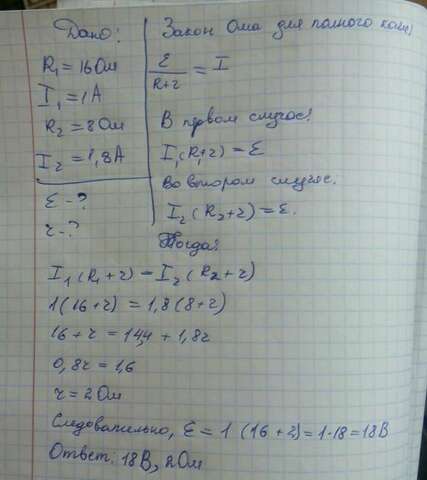 Дано:
R₁ = 16 Ом
I₁ = 1 А
R₂ = 8 Ом
I₂ = 1,8 А
ε - ?
r - ?
Закон Ома для полного
ε/(R+r) = I
В первом случае:
I₁(R₁+r) = ε
Во втором случае:
I₂(R₂+r) = ε.
Тогда:
I₁(R₁+r) = I₂(R₂+r)
1(16+r) = 1,8(8+r)
16+r = 14,4 + 1,8r
0,8r = 1,6
r = 2 Ом
Следовательно, ε = 1 (16+2) = 1·18 = 18 В
Ответ: 18 В, 2 Ом